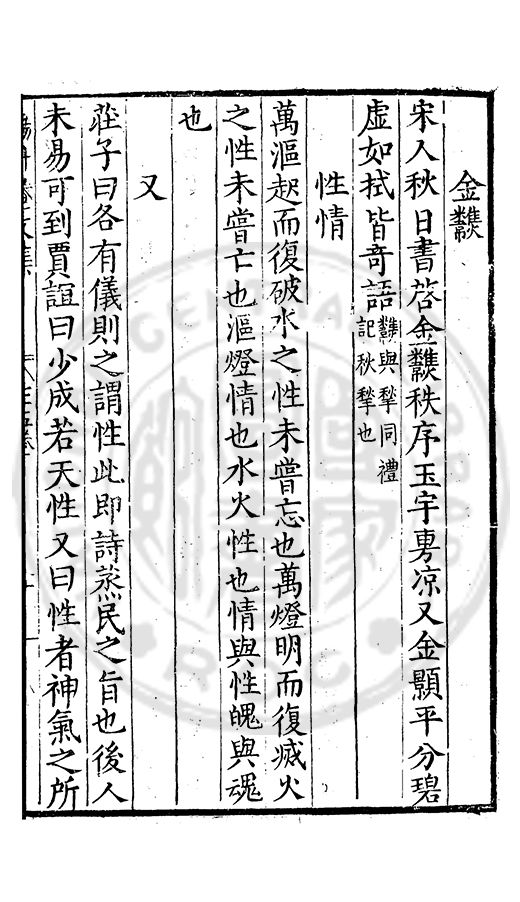 金䵻
宋人秋日書啓金䵻秩序玉宇旉凉又金顥平分碧
虛如拭皆竒語䵻與揫同禮記秋揫也
性情
萬漚起而復破水之性未嘗忘也萬燈明而復滅火
之性未嘗亡也漚燈情也水火性也情與性魄與魂
也
又
莊子曰各有儀則之謂性此即詩烝民之旨也後人
未易可到賈誼曰少成若天性又曰性者神氣之所